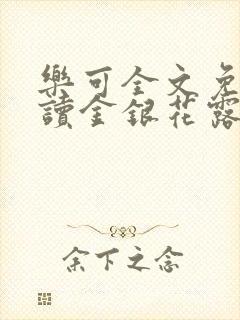 樂可全文免
讀金銀花露
余下之念